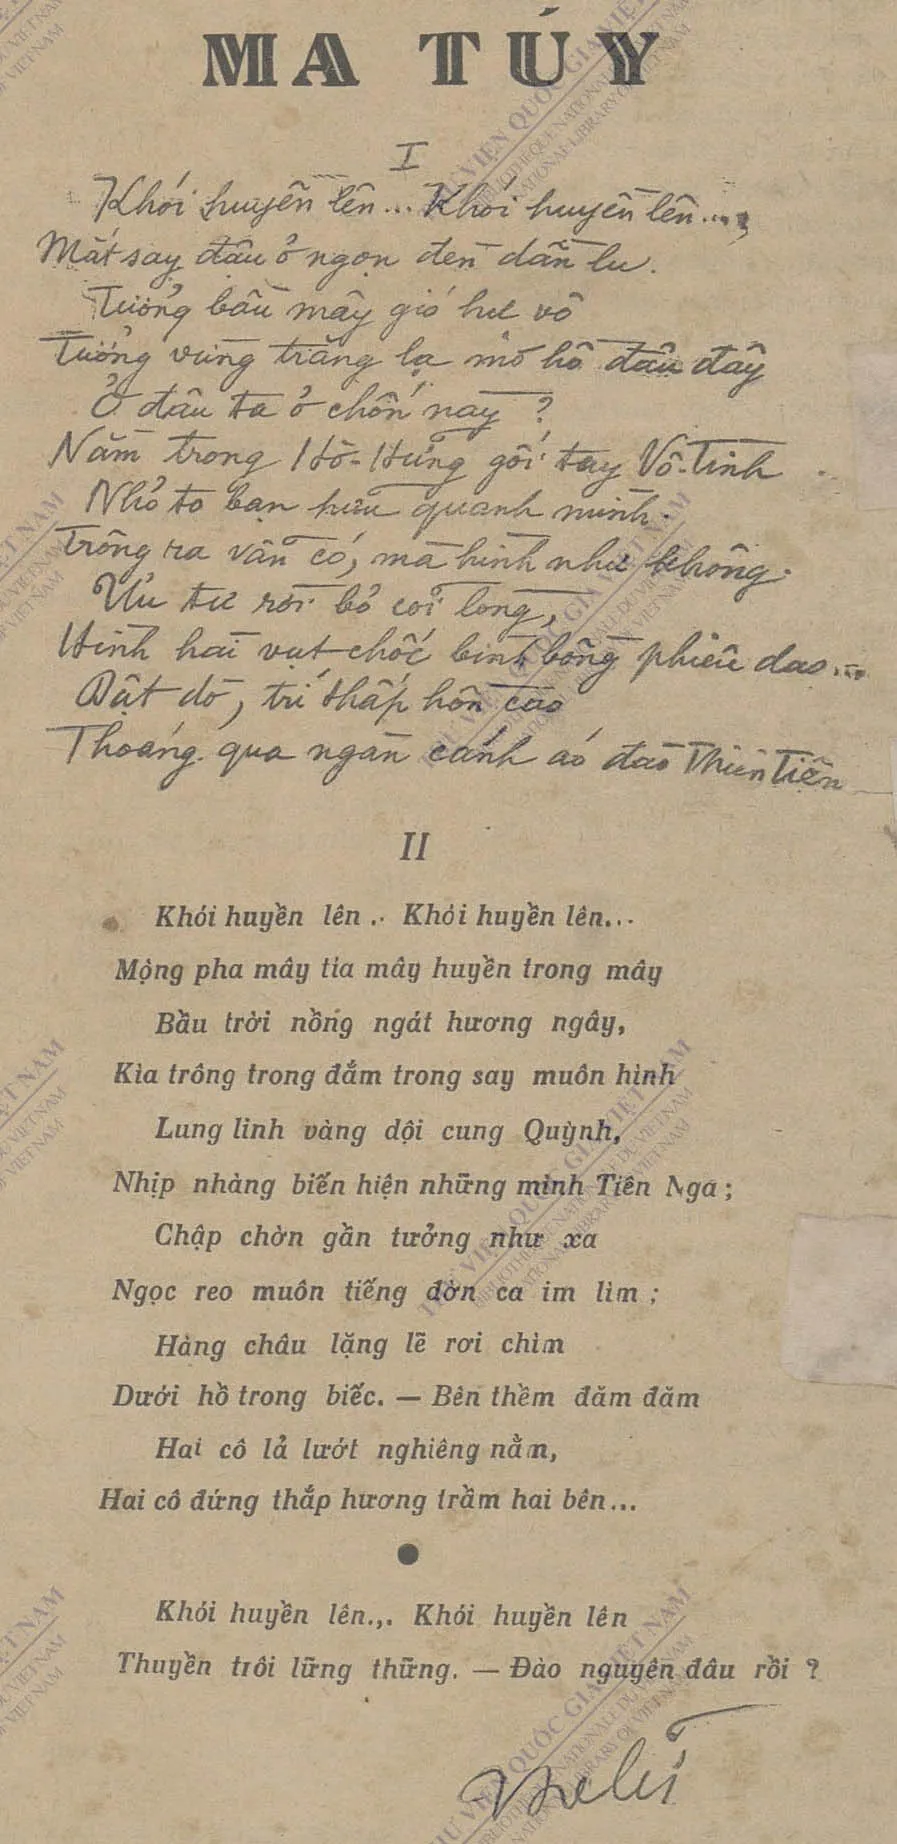 MA TÚY
I
Khói huyền lên... Khói huyền lên....,
Mắt say đậu ở ngọn đèn dần lu.
Tưởng bầu mây gió hư vô
Tưởng vùng trăng lạ mơ hồ đâu đây
Ở đâu ta ở chốn này ?
Nằm trong Hồ-Hững gối tay Vô-Tình
Nhỏ to bạn hữu quanh mình.
Trông ra vẫn có, mà hình như không.
Ưu tư rời bỏ cõi lòng,
Hình hài vụt chốc bềnh bồng phiêu dao...
Dật dờ, trí thấp hồn cao
Thoáng qua ngàn cánh áo đào Thiên Tiên
II
Khói huyền lên... Khói huyền lên...
Mộng pha mây tía mây huyền trong mây
Bầu trời nồng ngát hương ngây,
Kìa trông trong đắm trong say muôn hình
Lung linh vàng dội cung Quỳnh,
Nhịp nhàng biến hiện những mình Tiên Nga ;
Chập chờn gần tưởng như xa
Ngọc reo muôn tiếng đờn ca im lìm ;
Hàng châu lặng lẽ rơi chìm
Dưới hồ trong biếc. — Bên thềm đăm đăm
Hai cô lả lướt nghiêng nằm,
Hai cô đứng thắp hương trầm hai bên...
●
Khói huyền lên.,. Khói huyền lên
Thuyền trôi lững thững. — Đào nguyên đâu rồi ?
Thế Lữ
THƯ VIỆN QUỐC GIA VIỆT NAM
BIBLIOTHEQUE NATIONALE DU VIETNAM
NATIONAL LIBRARY OF VIETNAM